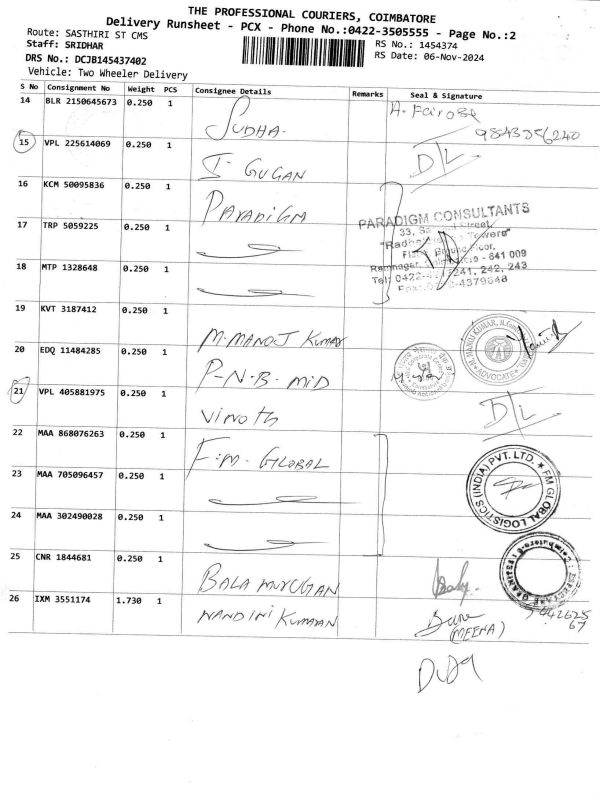 THE PROFESSIONAL COURIERS, COIMBATORE
Delivery Runsheet - PCX - Phone No.:0422-3505555 - Page No.:2
Route: SASTHIRI ST CMS
Staff: SRIDHAR
RS No.: 1454374
DRS No.: DCJB145437402
RS Date: 06-Nov-2024
Vehicle: Two Wheeler Delivery
S No Consignment No Weight PCS Consignee Details Remarks Seal & Signature
14 BLR 2150645673 0.250 1 SUDHA. A. Fairose
15 VPL 225614069 0.250 1 I- GUGAN D/L
16 KCM 50095836 0.250 1 PARADIGM
PARADIGM CONSULTANTS
17 TRP 5059225 0.250 1
18 MTP 1328648 0.250 1
641 009
241, 242, 243
19 KVT 3187412 0.250 1 M. MANOJ KUMAR
ADVOCATE
20 EDQ 11484285 0.250 1 P-N.B. MID
21 VPL 405881975 0.250 1 Vinoth D/L
22 MAA 868076263 0.250 1 F.M. GLOBAL
FM GLOBAL LOGISTICS (INDIA) PVT. LTD.
23 MAA 705096457 0.250 1
24 MAA 302490028 0.250 1
25 CNR 1844681 0.250 1 BALA MURUGAN
26 IXM 3551174 1.730 1 NANDINI KUMARAN
(MEENA)